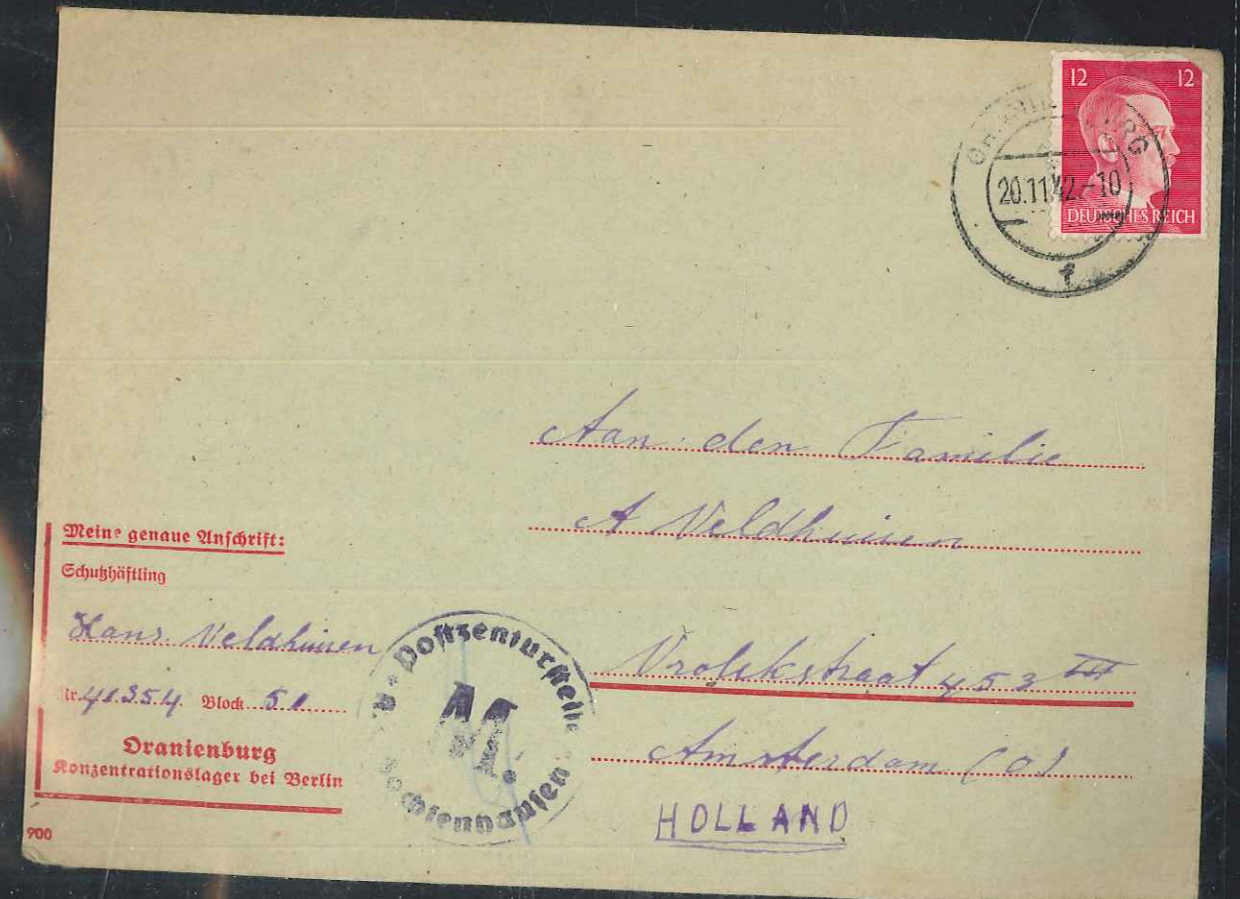 12 12
DEUTSCHES REICH
20.11.42.-10
f
Aan den Familie
A Veldhuisen
Vrolikstraat 453 III
Amsterdam (O)
HOLLAND
Meine genaue Anschrift:
Schutzhäftling
Hans Veldhuisen
Nr. 41354 Block 51
Oranienburg
Konzentrationslager bei Berlin
900
Postzensurstelle
M.
Sachsenhausen